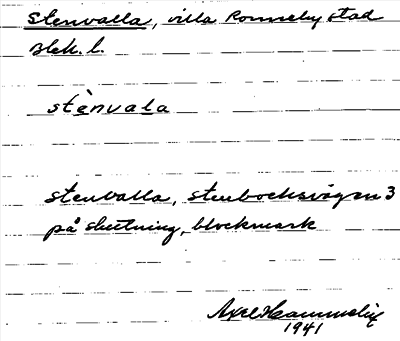 Stenvalla, villa Ronneby stad
Blek. l.
stènvala
stenvalla, stenbocksvägen 3
på sluttning, blockmark
Axel
1941